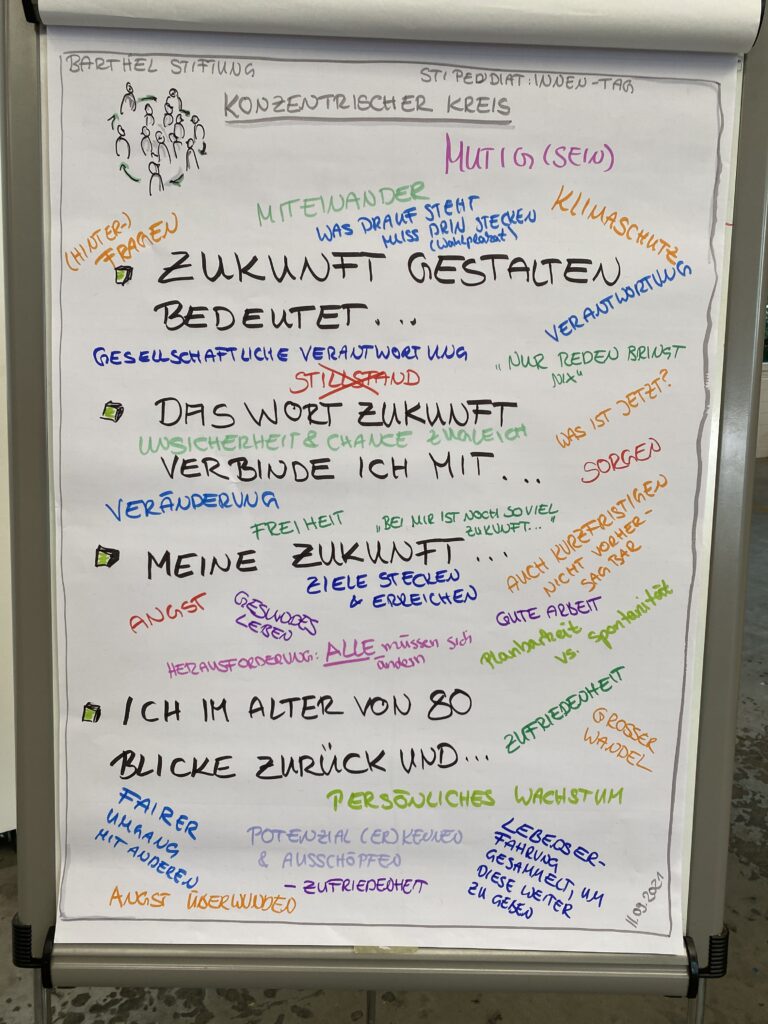 BARTHEL STIFTUNG
STIPENDIAT:INNEN-TAG
KONZENTRISCHER KREIS
MUTIG (SEIN)
MITEINANDER
WAS DRAUF STEHT
MUSS DRIN STECKEN
(Wahlplakat)
KLIMASCHUTZ
(HINTER-)
FRAGEN
ZUKUNFT GESTALTEN
BEDEUTET...
VERANTWORTUNG
GESELLSCHAFTLICHE VERANTWORTUNG
„NUR REDEN BRINGT
NIX"
STILLSTAND
DAS WORT ZUKUNFT
WAS IST JETZT?
UNSICHERHEIT & CHANCE ZUGLEICH
VERBINDE ICH MIT...
SORGEN
VERÄNDERUNG
FREIHEIT
„BEI MIR IST NOCH SO VIEL
ZUKUNFT..."
AUCH KURZFRISTIGEN
NICHT VORHER-
SAGBAR
MEINE ZUKUNFT...
ZIELE STECKEN
& ERREICHEN
ANGST
GESUNDES
LEBEN
GUTE ARBEIT
Planbarkeit
vs. Spontanität
HERAUSFORDERUNG: ALLE müssen sich
ändern
ICH IM ALTER VON 80
BLICKE ZURÜCK UND...
ZUFRIEDENHEIT
GROSSER
WANDEL
PERSÖNLICHES WACHSTUM
FAIRER
UMGANG
MIT ANDEREN
POTENZIAL (ER)KENNEN
& AUSSCHÖPFEN
- ZUFRIEDENHEIT
LEBENSER-
FAHRUNG
GESAMMELT, UM
DIESE WEITER
ZU GEBEN
ANGST ÜBERWUNDEN
11.09.2021